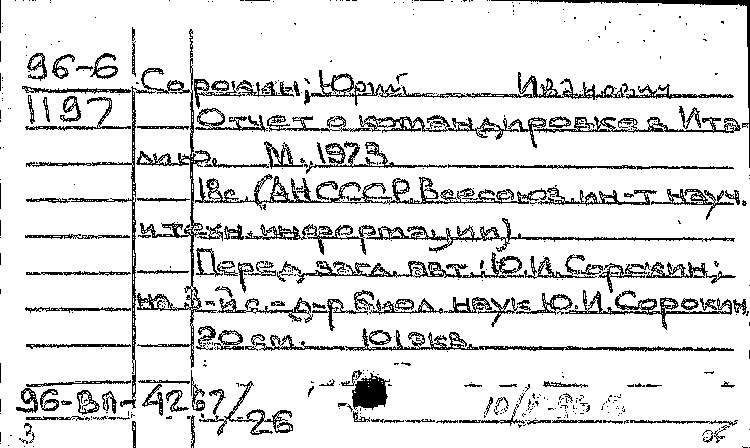 96-6
Сорокин, Юрий Иванович
1197
Отчет о командировке в Ита-
лию. М., 1973.
18с. (АН СССР. Всесоюз. ин-т науч.
и техн. информации).
Перед загл. авт.: Ю.И. Сорокин;
на 3-й с.- д-р биол. наук Ю.И. Сорокин.
20 см. 101экв.
96-ВП-4267/26
3